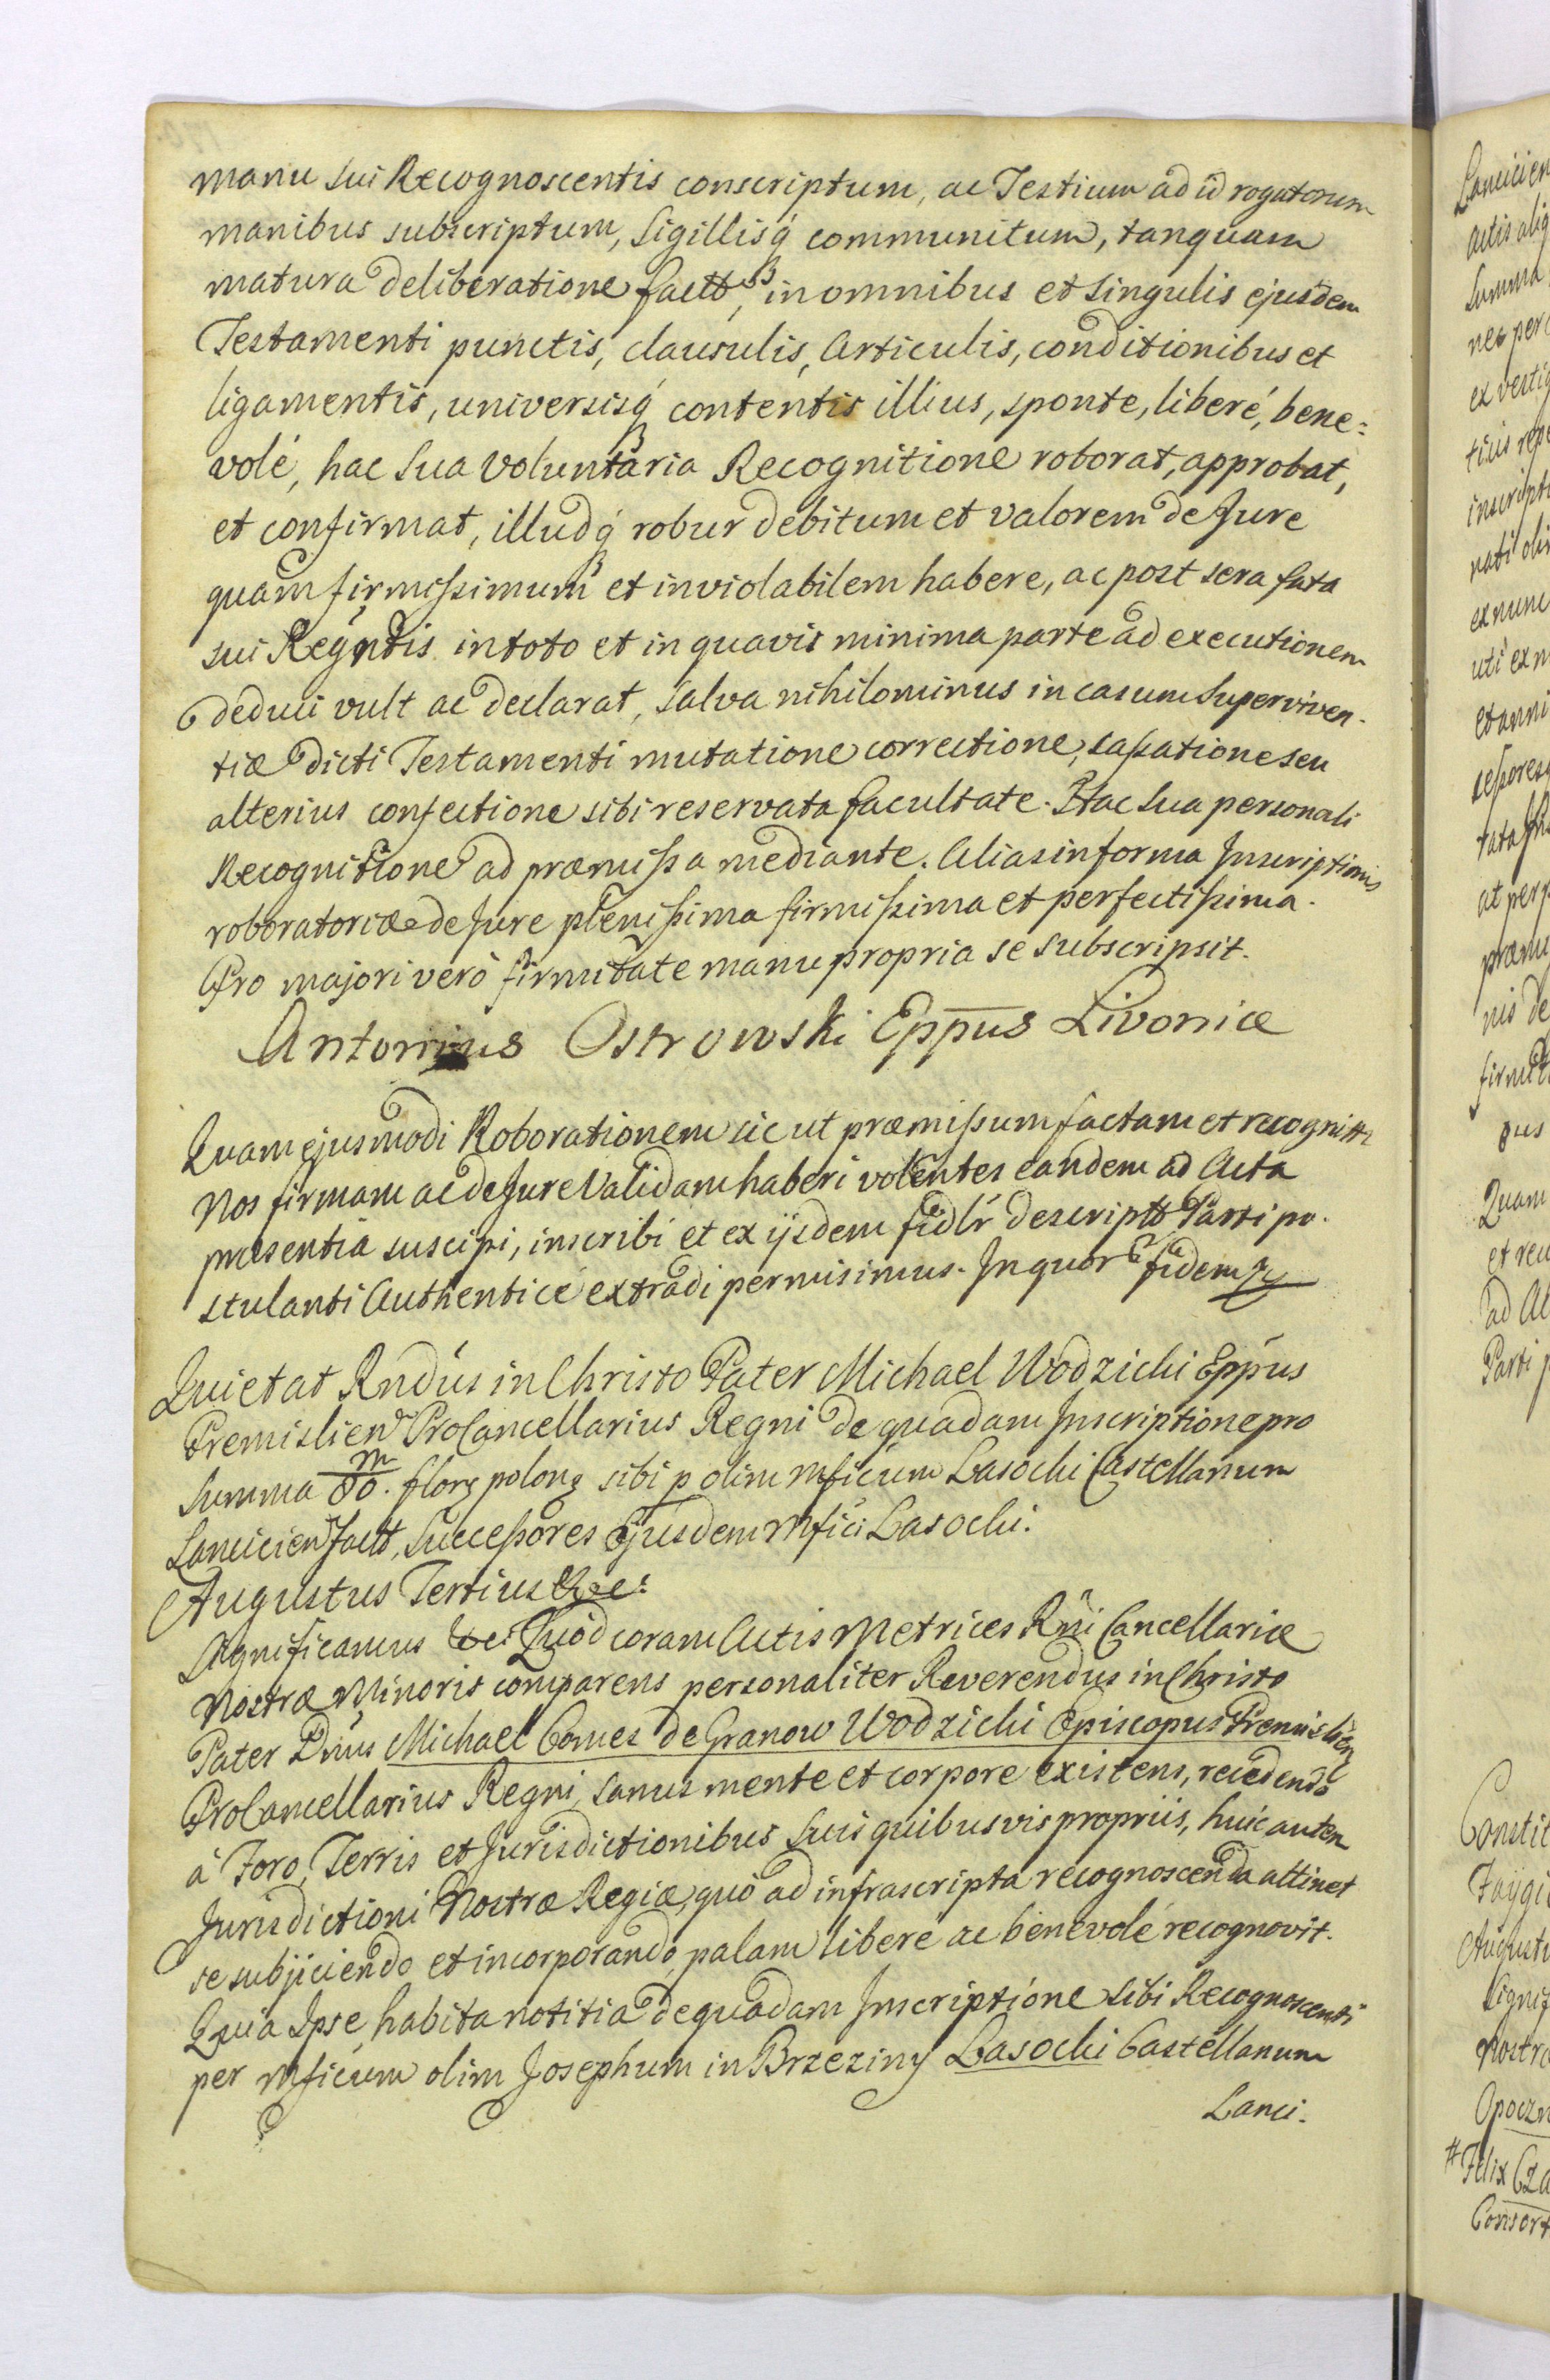 manu sui Recognoscentis conscriptum, ac Testium ad id rogatorum
manibus subscriptum, Sigillisq́ communitum, tanquam
matura deliberatione factt, in omnibus et singulis ejusdem
Testamenti punctis, clausulis, Articulis, conditionibus et
ligamentis, universisq́ contentis illius, sponte, liberé, bene:
volé, hac sua Voluntaria Recognitione roborat, approbat,
et confirmat, illudq́ robur debitum et valorem de Jure
quam firmissimum et inviolabilem habere, ac post sera fata
sui Regntis in toto et in quavis minima parte ad executionem
deduci vult ac declarat, salva nihilominus in casum Superviven-
tiæ dicti Testamenti mutatione correctione, cassatione seu
alterius confectione sibi reservata facultate. Hac sua personali
Recognitione ad præmissa mediante. Alias in forma Inscriptionis
roboratoriæ de Jure plenissima firmissima et perfectissima.
Pro majori verò firmitate manu propria se subscripsit.
Antonius Ostrowski Eppus Livoniæ
Quam ejusmodi Roborationem sic ut præmissum factam et recognitt
Nos firmam ac de Jure Validam haberi volentes eandem ad Acta
præsentia suscipi, inscribi et ex ijsdem fidlr descriptt Parti po-
stulanti Authenticé extradi permisimus. In quor fidem
Quietat Rndus in Christo Pater Michael Wodzicki Eppus
Premislien ProCancellarius Regni de quadam Inscriptione pro
Summa 80/m. flor polon sibi p olim Mficum Lasocki Castellanum
Lancicien factt, Successores Ejusdem Mfici Lasocki.
Augustus Tertius &c:
Significamus &c: Quod coram Actis Metrices Rni Cancellariæ
Nostræ Minoris comparens personaliter Reverendus in Christo
Pater Dnus Michael Comes de Granow Wodzicki Episcopus Premislien
ProCancellarius Regni, sanus mente et corpore existens, recedendo
à Foro, Terris et Jurisdictionibus suis quibusvis propriis, huic autem
Jurisdictioni Nostræ Regiæ, quò ad infrascripta recognoscenda attinet
se subjiciendo et incorporando, palam libere ac benevolé recognovit.
Quia Ipse habita notitia de quadam Inscriptione sibi Recognoscenti
per Mficum olim Josephum in Brzeziny Lasocki Castellanum
Lanci-